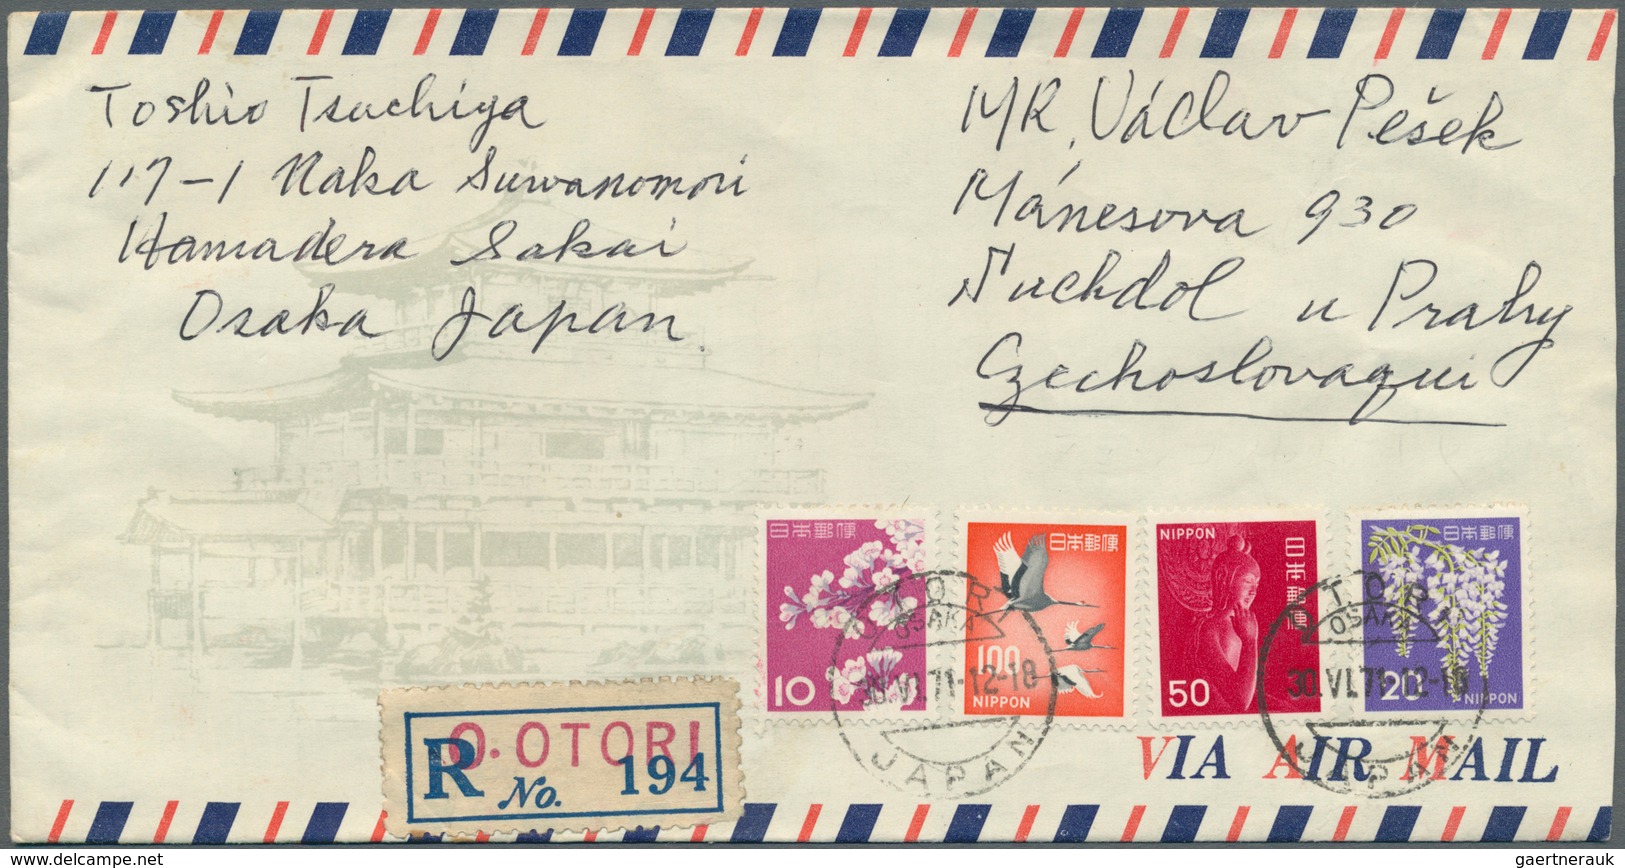 Toshio Tsuchiya
117-1 Naka Suwanomori
Hamadera Sakai
Osaka Japan.
MR. Václav Pešek
Mánesova 930
Suchdol u Prahy
Czechoslovaqui
日本郵便
10
日本郵便
100
NIPPON
NIPPON
日本郵便
50
日本郵便
20
NIPPON
OTORI
OSAKA
30.VI.71.12-18
JAPAN
OTORI
OSAKA
30.VI.71.12-18
JAPAN
O. OTORI
R No. 194
VIA AIR MAIL
delcampe.net
gaertnerauk